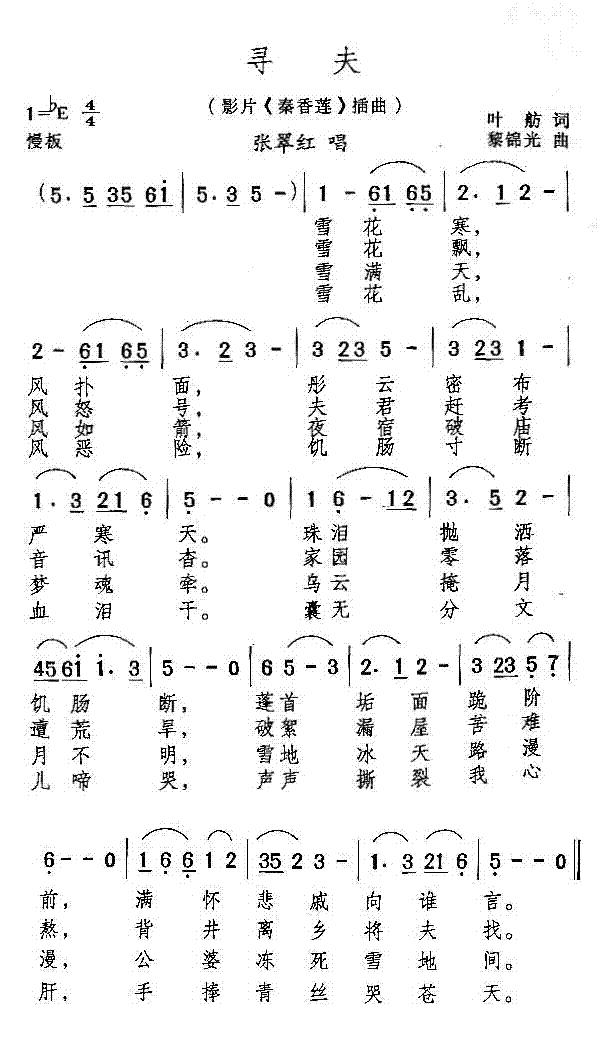 寻 夫
（影片《秦香莲》插曲）
1=♭E 4/4
叶 舫 词
慢板
张翠红 唱
黎锦光 曲
(5. 5 35 61 | 5. 3 5 -) | 1 - 61 65 | 2. 1 2 - |
雪 花 寒，
雪 花 飘，
雪 满 天，
雪 花 乱，
2 - 61 65 | 3. 2 3 - | 3 23 5 - | 3 23 1 - |
风 扑 面， 彤 云 密 布
风 怒 号， 夫 君 赶 考
风 如 箭， 夜 宿 破 庙
风 恶 险， 饥 肠 寸 断
1. 3 21 6 | 5 - - 0 | 1 6 - 12 | 3. 5 2 - |
严 寒 天。 珠 泪 抛 洒
音 讯 杳。 家 园 零 落
梦 魂 牵。 乌 云 掩 月
血 泪 干。 囊 无 分 文
4561 1. 3 | 5 - - 0 | 6 5 - 3 | 2. 1 2 - | 3 23 5 7 |
饥 肠 断， 蓬 首 垢 面 跪 阶
遭 荒 旱， 破 絮 漏 屋 苦 难
月 不 明， 雪 地 冰 天 路 漫
儿 啼 哭， 声 声 撕 裂 我 心
6 - - 0 | 1 6 6 1 2 | 35 2 3 - | 1. 3 21 6 | 5 - - 0 ‖
前， 满 怀 悲 戚 向 谁 言。
熬， 背 井 离 乡 将 夫 找。
漫， 公 婆 冻 死 雪 地 间。
肝， 手 捧 青 丝 哭 苍 天。